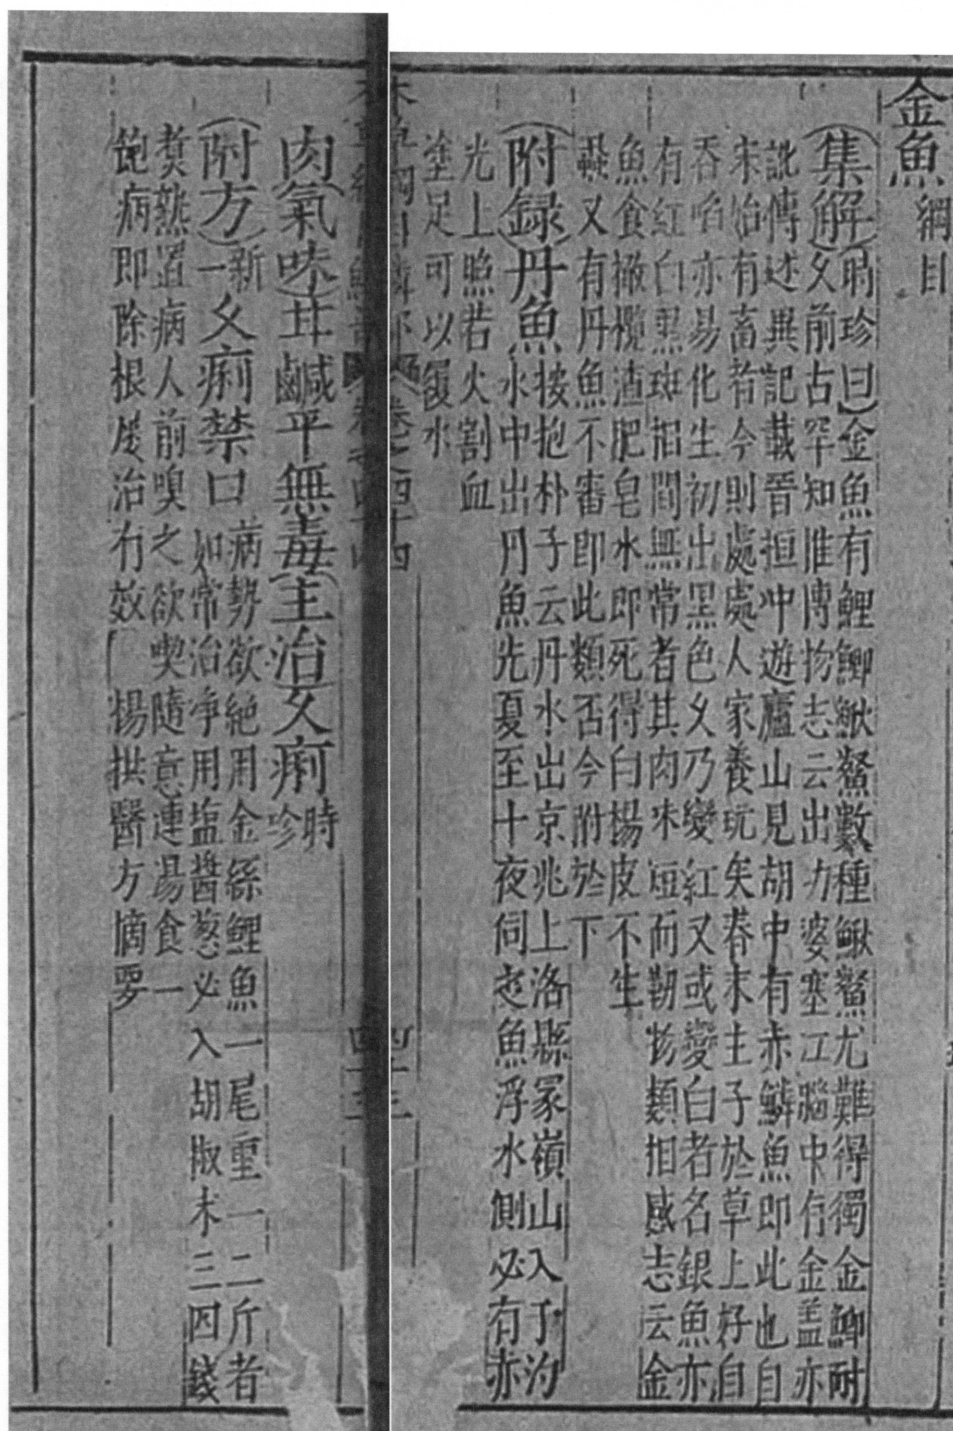 金魚綱目
集解時珍曰金魚有鯉鯽鰍鱉數種鰍鱉尤難得獨金鯽耐
久前古罕知惟博物志云出功婆塞江腦中有金盖亦
訛傳述異記載晉桓冲遊廬山見胡中有赤鱗魚即此也自
宋始有畜者今則處處人家養玩矣春末生子於草上好自
吞啗亦易化生初出黑色久乃變紅又或變白者名銀魚亦
有紅白黑斑相間無常者其肉味短而韌物類相感志云金
魚食橄欖渣肥皂水即死得白楊皮不生
蝨又有丹魚不審即此類否今附於下
附録丹魚按抱朴子云丹水出京兆上洛縣冢嶺山入于汋
水中出丹魚先夏至十夜伺之魚浮水側必有赤
光上照若火割血
塗足可以履水
卷之四十四
四十三
肉氣味甘鹹平無毒主治久痢時珍
附方新一久痢禁口病勢欲絶用金絲鯉魚一尾重一二斤者
如常治净用塩醬葱必入胡椒末三四錢
煑熟置病人前嗅之欲喫隨意連湯食一
飽病即除根屢治有效 楊拱醫方摘要